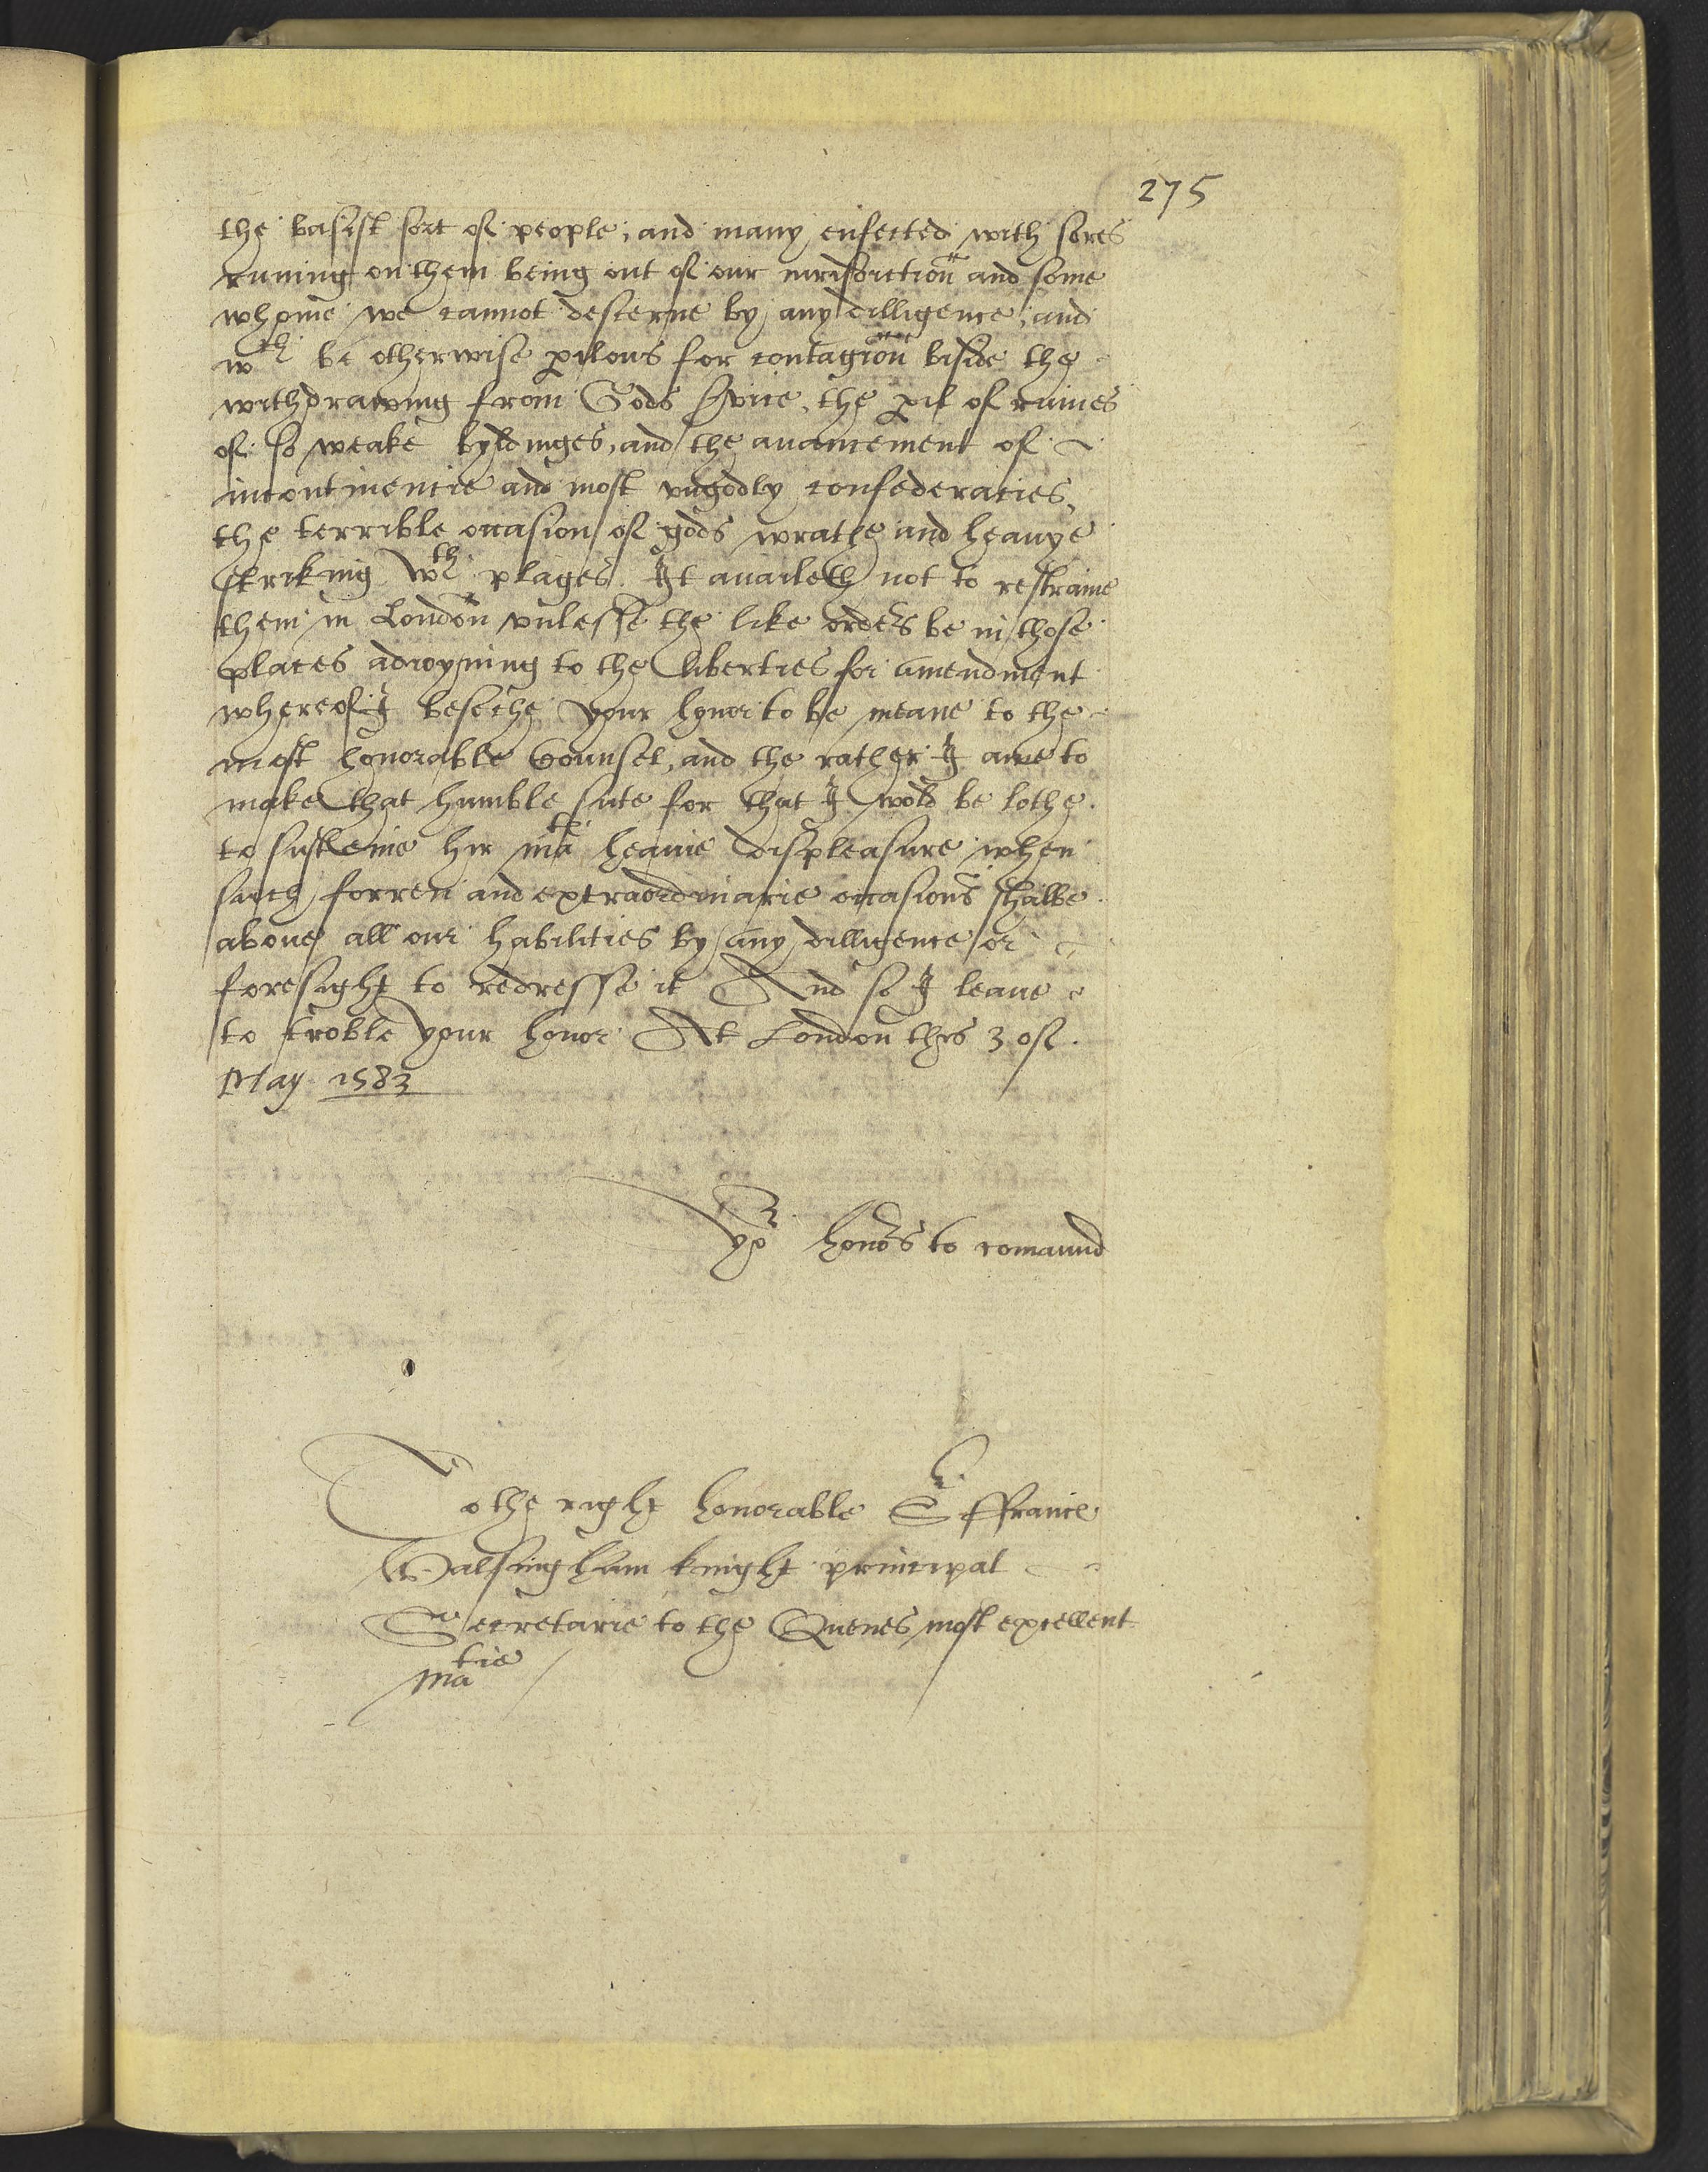 275
the basist sort of people, and many enfected with sores
runing on them being out of our iurisdiction and some
whome we cannot descerne by any dilligence, and
wch be otherwise pilous for contagion biside the
withdrawing from Gods svice, the pil of ruines
of so weake byldinges, and the auancement of
incontinencie and most vngodly confederacies,
the terrible occasion of gods wrathe and heauye
striking wth plages. It auaileth not to restraine
them in London vnlesse the like orders be in those
places adioyning to the liberties for amendment
whereof I beseche your honor to be meane to the
most honorable Counsel, and the rather I ame to
make that humble sute for that I wold be lothe
to susteine hir matis heauie displeasure when
such forren and extraordinarie occasions shalbe
aboue all our habilities by any dilligence or
foresight to redresse it And so I leaue
to troble your honor At London this 3 of
May 1583
Yor honors to comaund
To the right honorable Sr ffrauncis
Walsingham knight principal
Secretarie to the Quenes most excellent
Matie